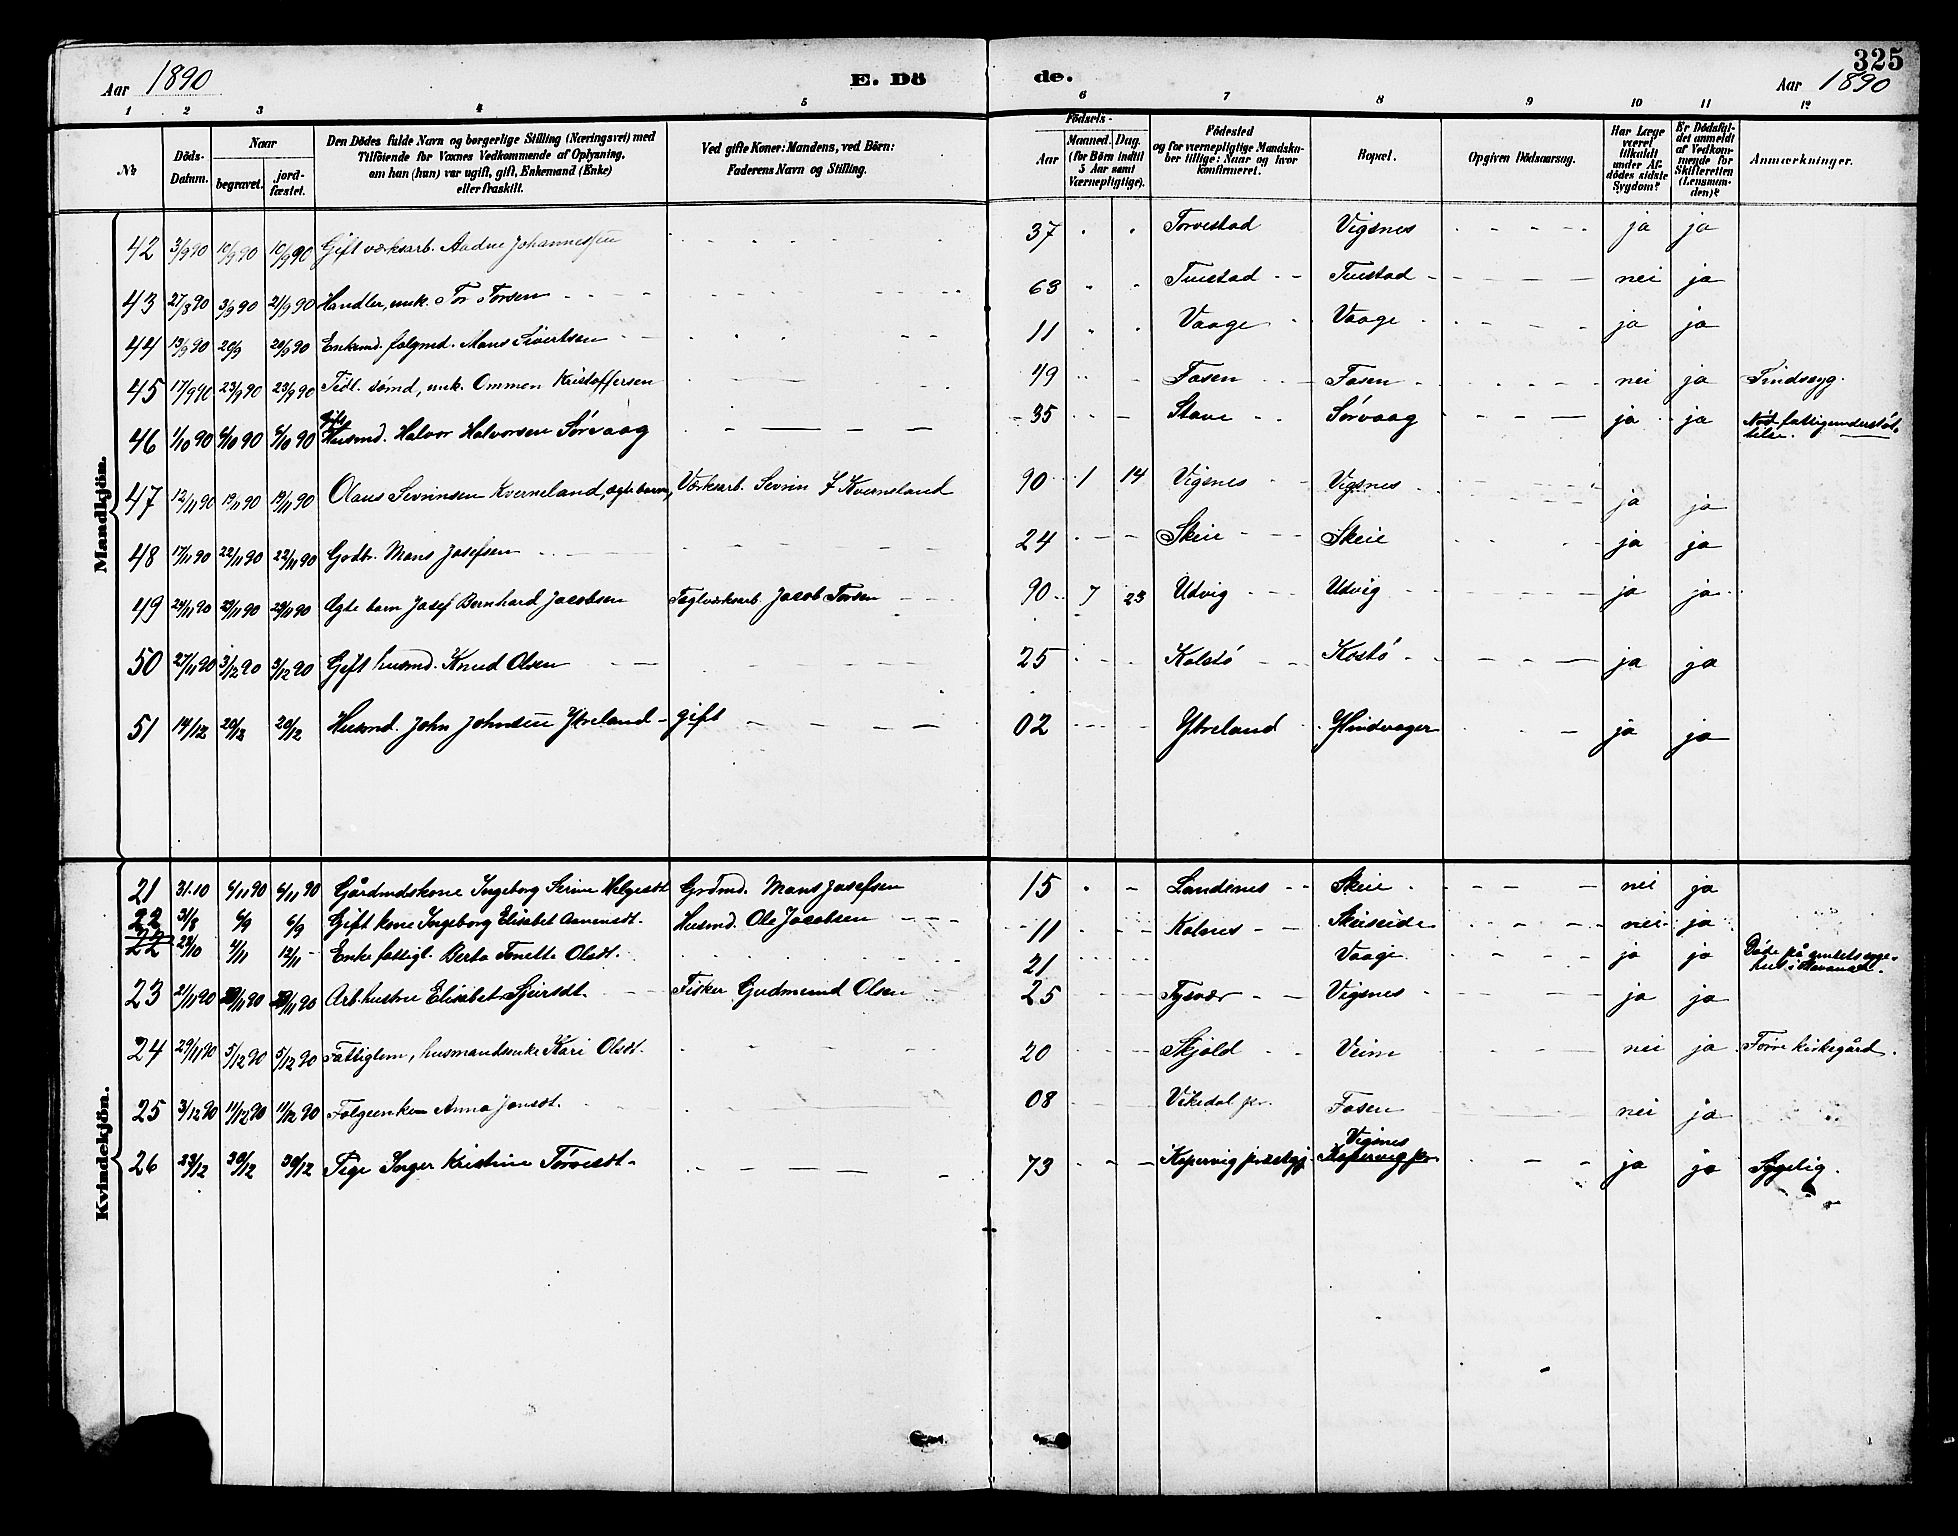 325
Aar 1890
E. Dö
de.
Aar 1890
1 2 3 4 5 6 7 8 9 10 11 12
No
Döds-Datum.
Naar
begravet.
jord-fæstet.
Den Dödes fulde Navn og borgerlige Stilling (Næringsvei) med
Tilföiende for Voxnes Vedkommende af Oplysning,
om han (hun) var ugift, gift, Enkemand (Enke)
eller fraskilt.
Ved gifte Koner: Mandens, ved Börn:
Faderens Navn og Stilling.
Födsels-
Aar
Maaned. Dag.
(for Börn indtil
5 Aar samt
Værnepligtige).
Födested
og for værnepligtige Mandska-
ber tillige: Naar og hvor
konfirmeret.
Bopæl.
Opgiven Dödsaarsag.
Har Læge
været
tilkaldt
under Af-
dødes sidste
Sygdom?
Er Dödsfal-
det anmeldt
af Vedkom-
mende for
Skifteretten
(Lensman-
den)?
Anmærkninger.
Mandkjön.
42 3/9 90 10/9 90 10/9 90 Gift værksarb. Aadne Johannessen 37 Torvestad Vigsnes ja ja
43 27/8 90 3/9 90 21/9 90 Handler, unk. Tor Torsen 63 Tuestad Tuestad nei ja
44 13/9 90 20/9 20/9 90 Enkemd. folgmd. Mons Sivertsen 11 Vaage Vaage ja ja
45 17/9 90 23/9 90 23/9 90 Tidl. sömd, unk. Ommon Kristoffersen 49 Fosen Fosen nei ja Sindssyg.
46 1/10 90 6/10 90 6/10 90 gift Husmd. Halvor Halvorsen Sörvaag 35 Stave Sörvaag ja ja Nöd fattigunderstöt-
telse.
47 12/11 90 19/11 90 19/11 90 Olaus Sevrinsen Kverneland, ægte barn, Værksarb. Sevrin J Kverneland 90 1 14 Vigsnes Vigsnes ja ja
48 17/11 90 22/11 90 22/11 90 Godbr. Mons Josefsen 24 Skeie Skeie ja ja
49 24/11 90 29/11 90 29/11 90 Ægte barn Josef Bernhard Jacobsen Teglværksarb. Jacob Torsen 90 7 23 Udvig Udvig ja ja
50 27/11 90 3/12 90 3/12 90 Gift husmd. Knud Olsen 25 Kolstö Kostö ja ja
51 14/12 20/12 20/12 Husmd. John Johnsen Ytreland gift 02 Ytreland Hindvager ja ja
Kvindekjön.
21 31-10 6/11 90 6/11 90 Gårdmdskone Ingeborg Serine Helgesdt Grdmd. Mons Josefsen 15 Sandsnes Skeie nei ja
22 31/8 6/9 6/9 Gift kone Ingeborg Elisabet Aamensdt. Husmd. Ole Jacobsen 11 Kolnes Skeiseide nei ja
22 28/10 4/11 12/11 Enke fattigl. Berta Tonette Olsdt. 21 Vaage ja ja Döde på amtets syge-
hus i Stavanger.
23 21/11 90 28/11 90 28/11 90 Arb. hustru Elisabet Sjursdt. Fisker Gudmund Olsen 25 Tysvær Vigsnes ja ja
24 29/11 90 5/12 90 5/12 90 Fattiglem, husmandsenke Kari Olsdt. 20 Skjold Veim nei ja Förre kirkegård.
25 3/12 90 11/12 90 11/12 90 Folgeenken Anna Jonsdt. 08 Vikedal pr. Fosen nei ja
26 23/12 30/12 30/12 Pige Inger Kristine Torvesdt. 73 Kopervig præstegj. Vigsnes Kopervig pr. ja ja Sygelig.